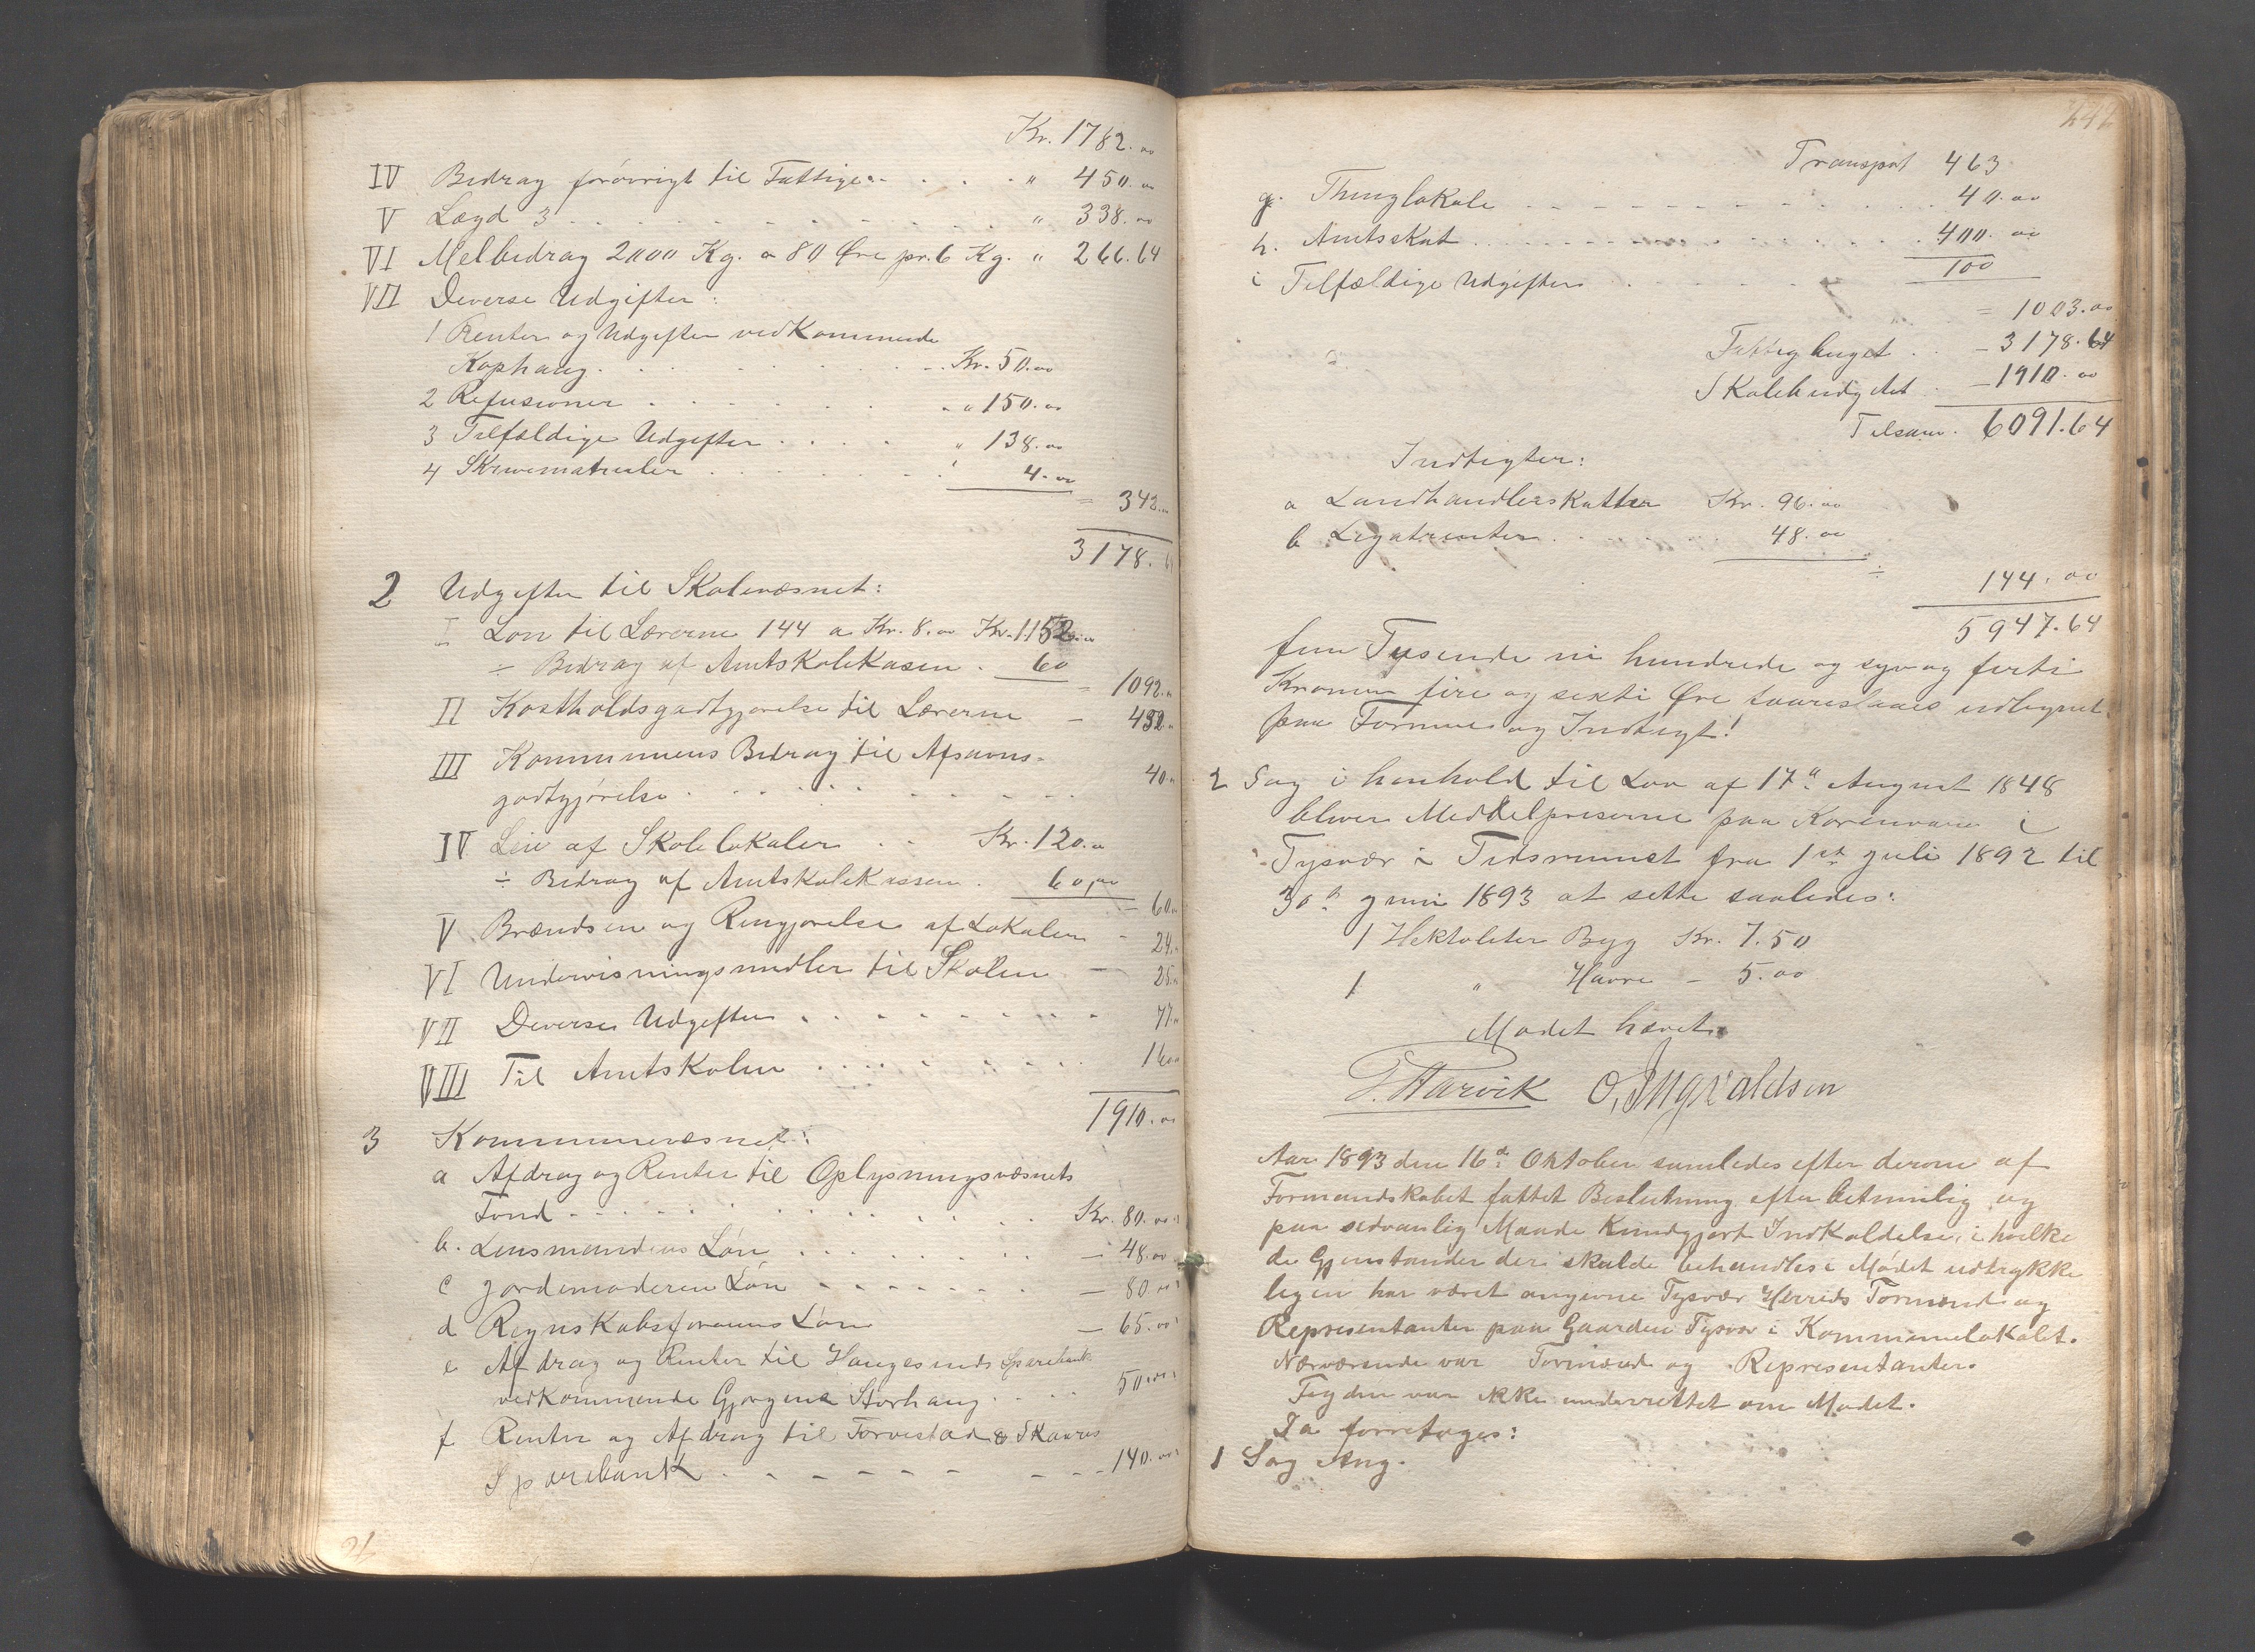 Kr. 1782.00
IV Bidrag forøvrigt til Fattige - . . . - " 450.00
V Lægd 3 . . . . . . . " 338.00
VI Melbidrag 2000 Kg. a 80 Øre pr. 6 Kg. " 266.64
VII Diverse Udgifter:
1 Renter og Udgifter vedkommende
Kaphaug . . . . . . Kr. 50.00
2 Refusioner . . . . . " 150.00
3 Tilfældige Udgifter . . . . " 138.00
4 Skrivematrialer . . . . 4.00
= 342.00
3178.64
2 Udgifter til Skolevæsnet:
I Løn til Lærerne 144 a Kr. 8.00 Kr. 1152.00
÷ Bidrag af Amtskolekasen . 60
= 1092.00
II Kostholdsgodtgjørelse til Lærerne - 432.00
III Kommunens Bidrag til Afsavns-
godtgjørelse . . . . . . . 40.00
IV Leie af Skolelokaler . . Kr. 120.00
÷ Bidrag af Amtskolekassen . 60,00
- 60.00
V Brændsen og Rengjørelse af Lokalen - 24.00
VI Undervisningsmidler til Skolen - 25.00
VII Diverse Udgifter . . . . . . 77.00
VIII Til Amtskolen . . . . . . 160.00
1910.00
3 Kommunevæsnet:
a Afdrag og Renter til Oplysningsvæsnets
Fond - . . . . . . Kr. 80.00
b. Lensmandens Løn . . . . . - 48.00
c Jordemoderen Løn - - - - - - 80.00
d Regnskabsførerens Løn - 65.00
e Afdrag og Renter til Haugesunds Sparebank
vedkommende Gjorgena Storhaug . . . . 50.00
f Renter og Afdrag til Torvestad & Skaares
Sparebank . - - - - - - - 140.00
242
Transport 463
g. Thinglokale - - - - - - - 40.00
h. Amtsskat . . . . . . . . 400.00
i Tilfældige Udgifter . . . . . 100
= 1003.00
Fattigbuget . - 3178.64
Skolebudgettet . - 1910.00
Tilsam. 6091.64
Indtigter:
a Landhandlerskatter Kr. 96.00
b Legatrenter . . . . . 48.00
÷ 144.00
5947.64
fem Tusende ni hundrede og syv og førti
Kroner fire og sexti Øre foareslaaes udlignet
paa Formue og Indtegt!
2 Sag i henhold til Lov af 17de August 1848
bliver Meddelpriserne paa Kornvarer i
Tysvær i Tidsrumet fra 1ste Juli 1892 til
30te Juni 1893 at sette saaledes:
1 Hektoliter Byg Kr. 7.50
1 " Havre - 5.00
Mødet hævet
T. Aarvik O. Ingvaldsen
Aar 1893 den 16de Oktober samledes efter derom af
Formandskabet fattet Beslutning efter betimelig og
paa sedvanlig Maade kundgjort Indkaldelse, i hvilke
de Gjenstander der skulde behandles i Mødet udtrykke
ligen har været angivne Tysvær Herreds Formænd og
Representanter paa Gaarden Tysvær i Kommunelokalet.
Nærværende var Formænd og Representanter.
Fogden var ikke underrettet om Mødet.
Da forretoges:
1 Sag Ang.